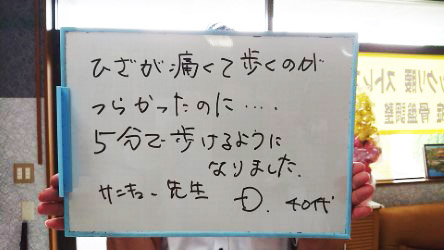 ひざが痛くて歩くのが
つらかったのに‥‥
5分で歩けるように
なりました.
サンキュー先生 D. 40代